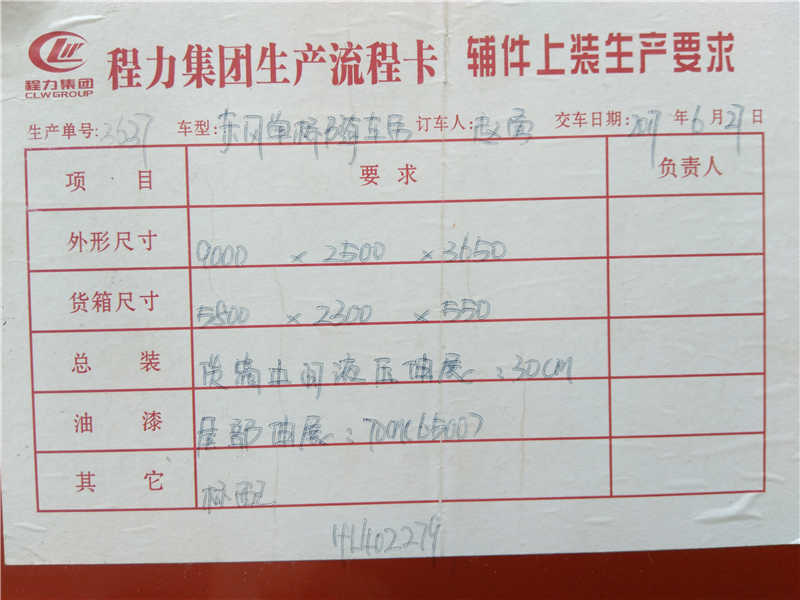 程力集团
CLWGROUP
程力集团生产流程卡 辅件上装生产要求
生产单号: 3627 车型: 东风单桥 订车人: 交车日期: 2017 年 6 月 27 日
项 目 要 求 负责人
外形尺寸 9000 × 2500 × 3650
货箱尺寸 5800 × 2300 × 550
总 装 液压伸展 : 30CM
油 漆 后部伸展 : 700 (6500)
其 它 标配
HL402279